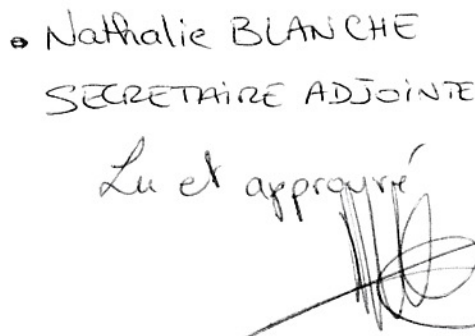 • Nathalie BLANCHE
SECRETAIRE ADJOINTE
Lu et approuvé